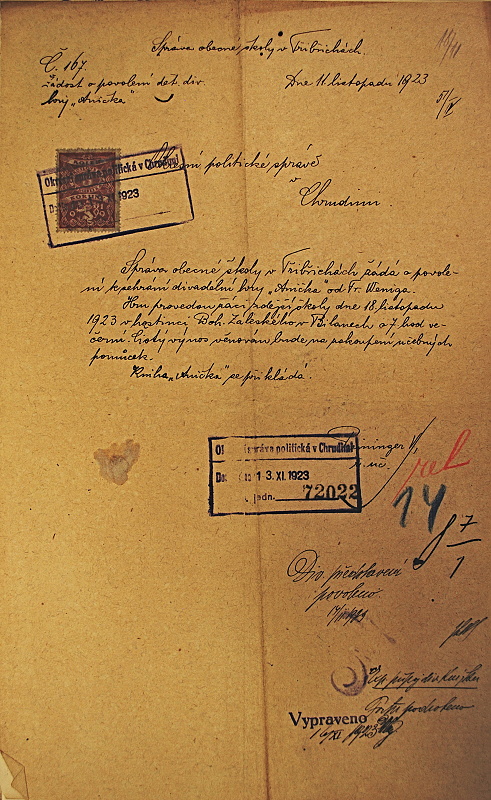 Správa obecné školy v Tribřichách.
Č. 167.
Dne 11. listopadu 1923
Žádost o povolení det. div.
hry „Anička"
Okresní politické správě
v
Chrudimi
Okresní správa politická v Chrudimi
1923
Správa obecné školy v Tribřichách žádá o povole-
ní k sehrání divadelní hry „Anička" od Fr. Weniga.
Hru provedou žáci zdejší školy dne 18. listopadu
1923 v hostinci Boh. Zaleského v Bílanech o 7 hod. ve-
černí. Čistý výnos věnován bude na zakoupení učebných
pomůcek.
Kniha „Anička" se přikládá.
správa politická v Chrudimi
13. XI. 1923
jedn. 72022
ř. uč.
14
7
1
Div. představení
povoleno.
Vypraveno
16/XI 1923